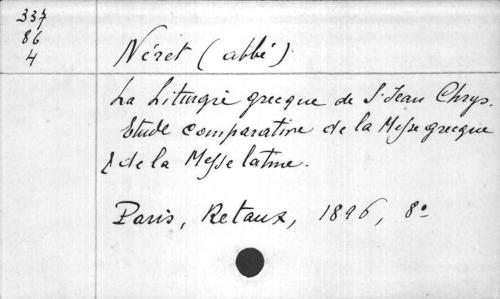 337
86
4
Néret (abbé)
La Liturgie grecque de S. Jean Chrys.
Etude comparative de la Messe grecque
& de la Messe latine.
Paris, Retaux, 1896, 8°